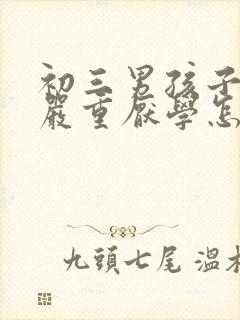 初三男孩子
嚴重厭學怎
九頭七尾 溫